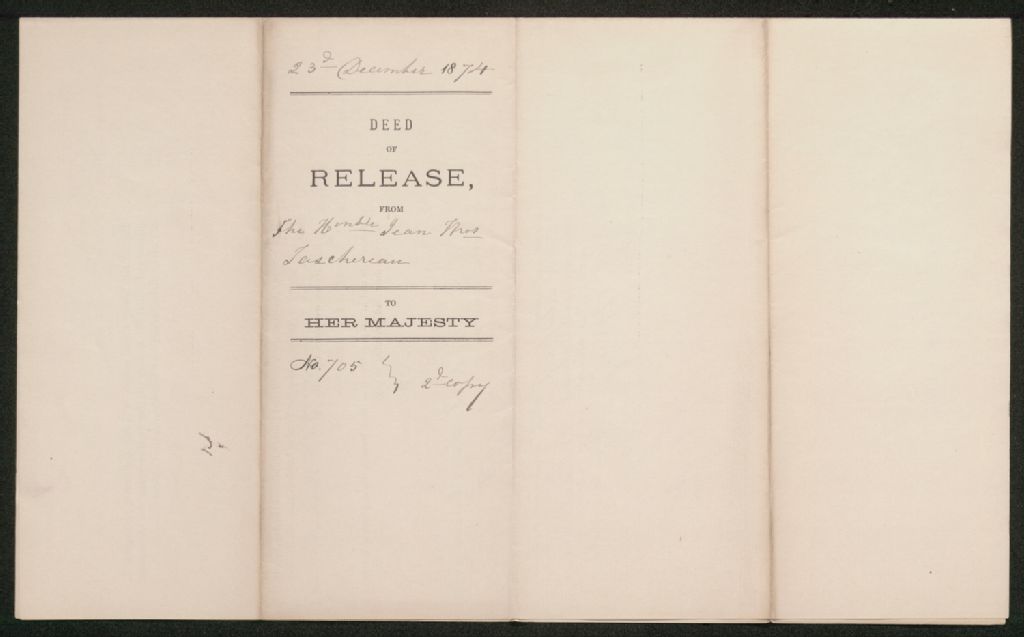 23d December 1874
DEED
OF
RELEASE,
FROM
The Honble Jean Thos
Taschereau
TO
HER MAJESTY
No. 705 } 2d copy